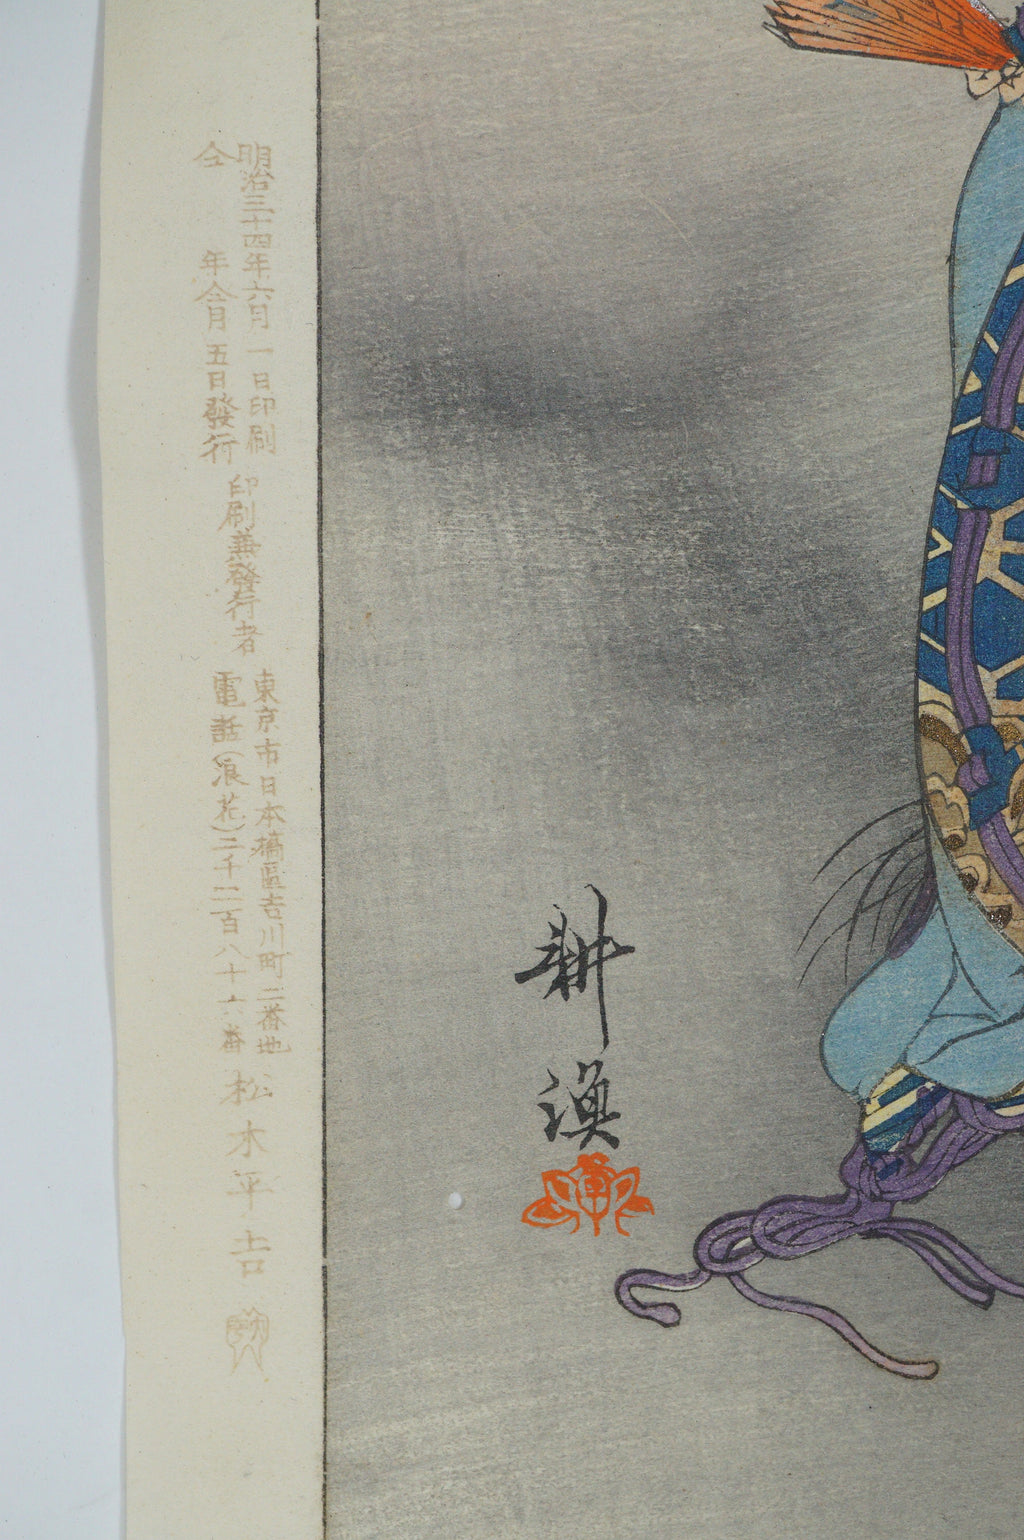 明治三十四年六月一日印刷
仝年仝月五日發行
印刷兼發行者
東京市日本橋區吉川町二番地
電話(浪花)二千二百八十六番
松木平吉
耕漁